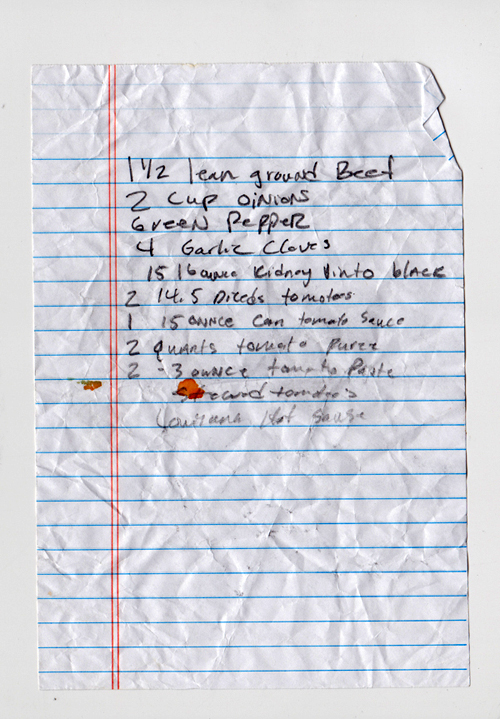 1 1/2 lean ground Beef
2 Cup OiNiONS
GreeN PePPeR
4 Garlic Cloves
15 16 ounce Kidney black
2 14.5 Diceds tomatoes
1 15 ounce Can tomato Sauce
2 Quants tomato Puree
2 - 3 ounce tomato Paste
tomatoe's
Louisiana Hot Sause